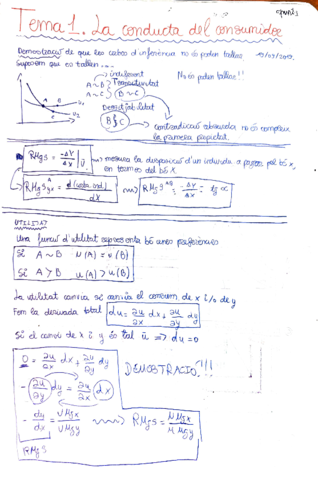 Tema 1. La conducta del consumidor
Demostració de que les corbes d'indiferència no es poden tallar.
Suposem que es tallen...
indiferent
A ~ B Transitivitat
A ~ C B ~ C
No es poden tallar!!
Desitjabilitat
B ≻ C
contradicció absoluta no es compleix
la primera propietat.
A
B
C
U2
U1
X
RMgS = -ΔY/ΔX | Ū
mesura la disposició d'un individu a pagar pel bé x,
en termes del bé X.
RMgS yx A = d(corba ind.)/dX
RMgS AB = -ΔY/ΔX = tg α
UTILITAT
Una funció d'utilitat representa bé unes preferències
Si A ~ B U(A) = U(B)
Si A > B U(A) > U(B)
La utilitat canvia si canvia el consum de x i/o de y
Fem la derivada total du = ∂u/∂x dx + ∂u/∂y dy
Si el canvi de x i y és tal ū ⇒ du = 0
0 = ∂u/∂x dx + ∂u/∂y dy
DEMOSTRACIÓ!!!
- ∂u/∂y dy = ∂u/∂x dx
- dy/dx = UMgx/UMgy
RMgS = UMgx/UMgy
RMgS